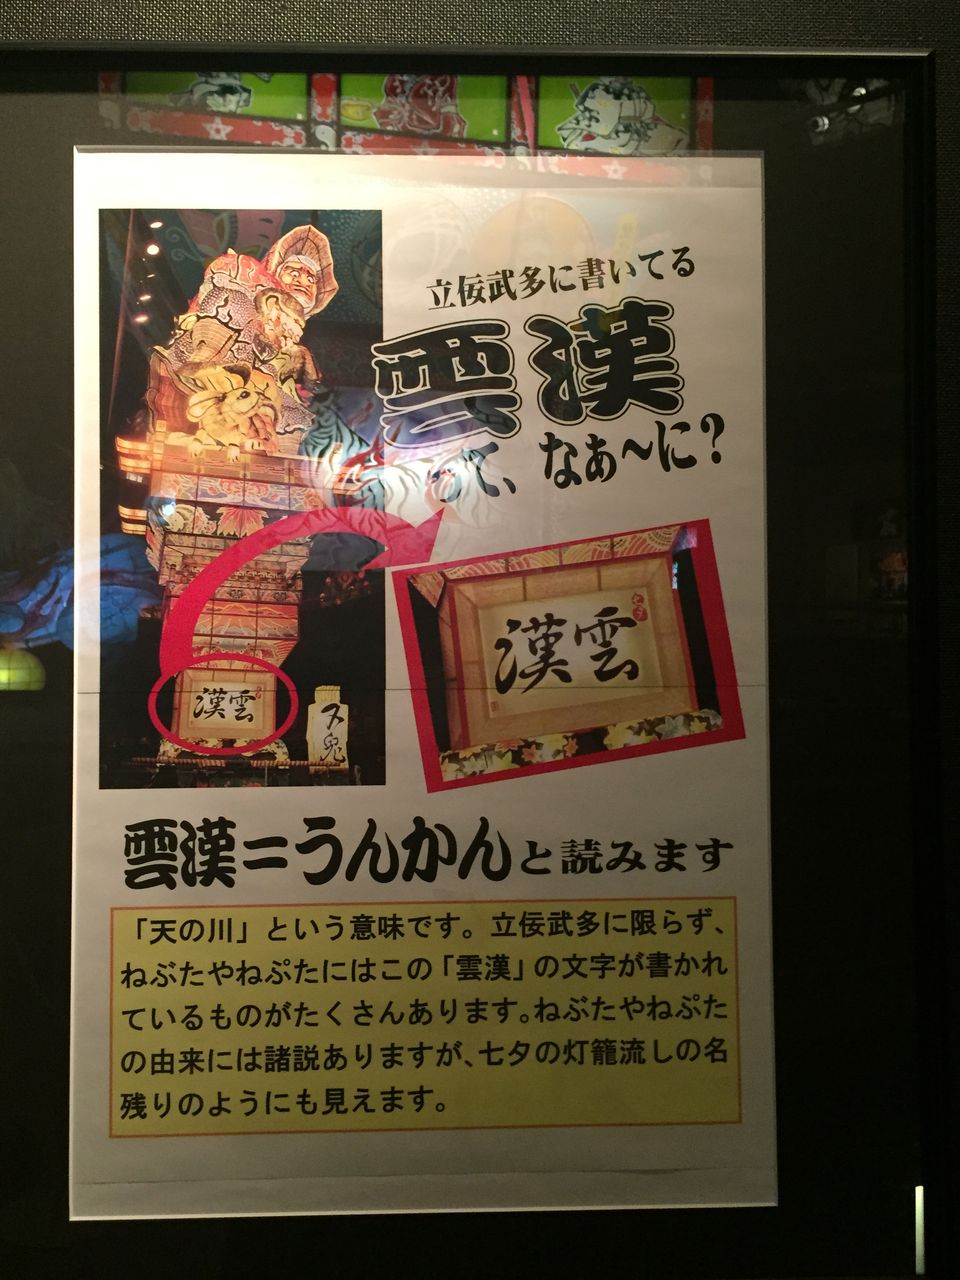 立佞武多に書いてる
雲漢
って、なぁ〜に？
漢雲
七夕
漢雲
雲漢=うんかんと読みます
「天の川」という意味です。立佞武多に限らず、
ねぶたやねぷたにはこの「雲漢」の文字が書かれ
ているものがたくさんあります。ねぶたやねぷた
の由来には諸説ありますが、七夕の灯籠流しの名
残りのようにも見えます。